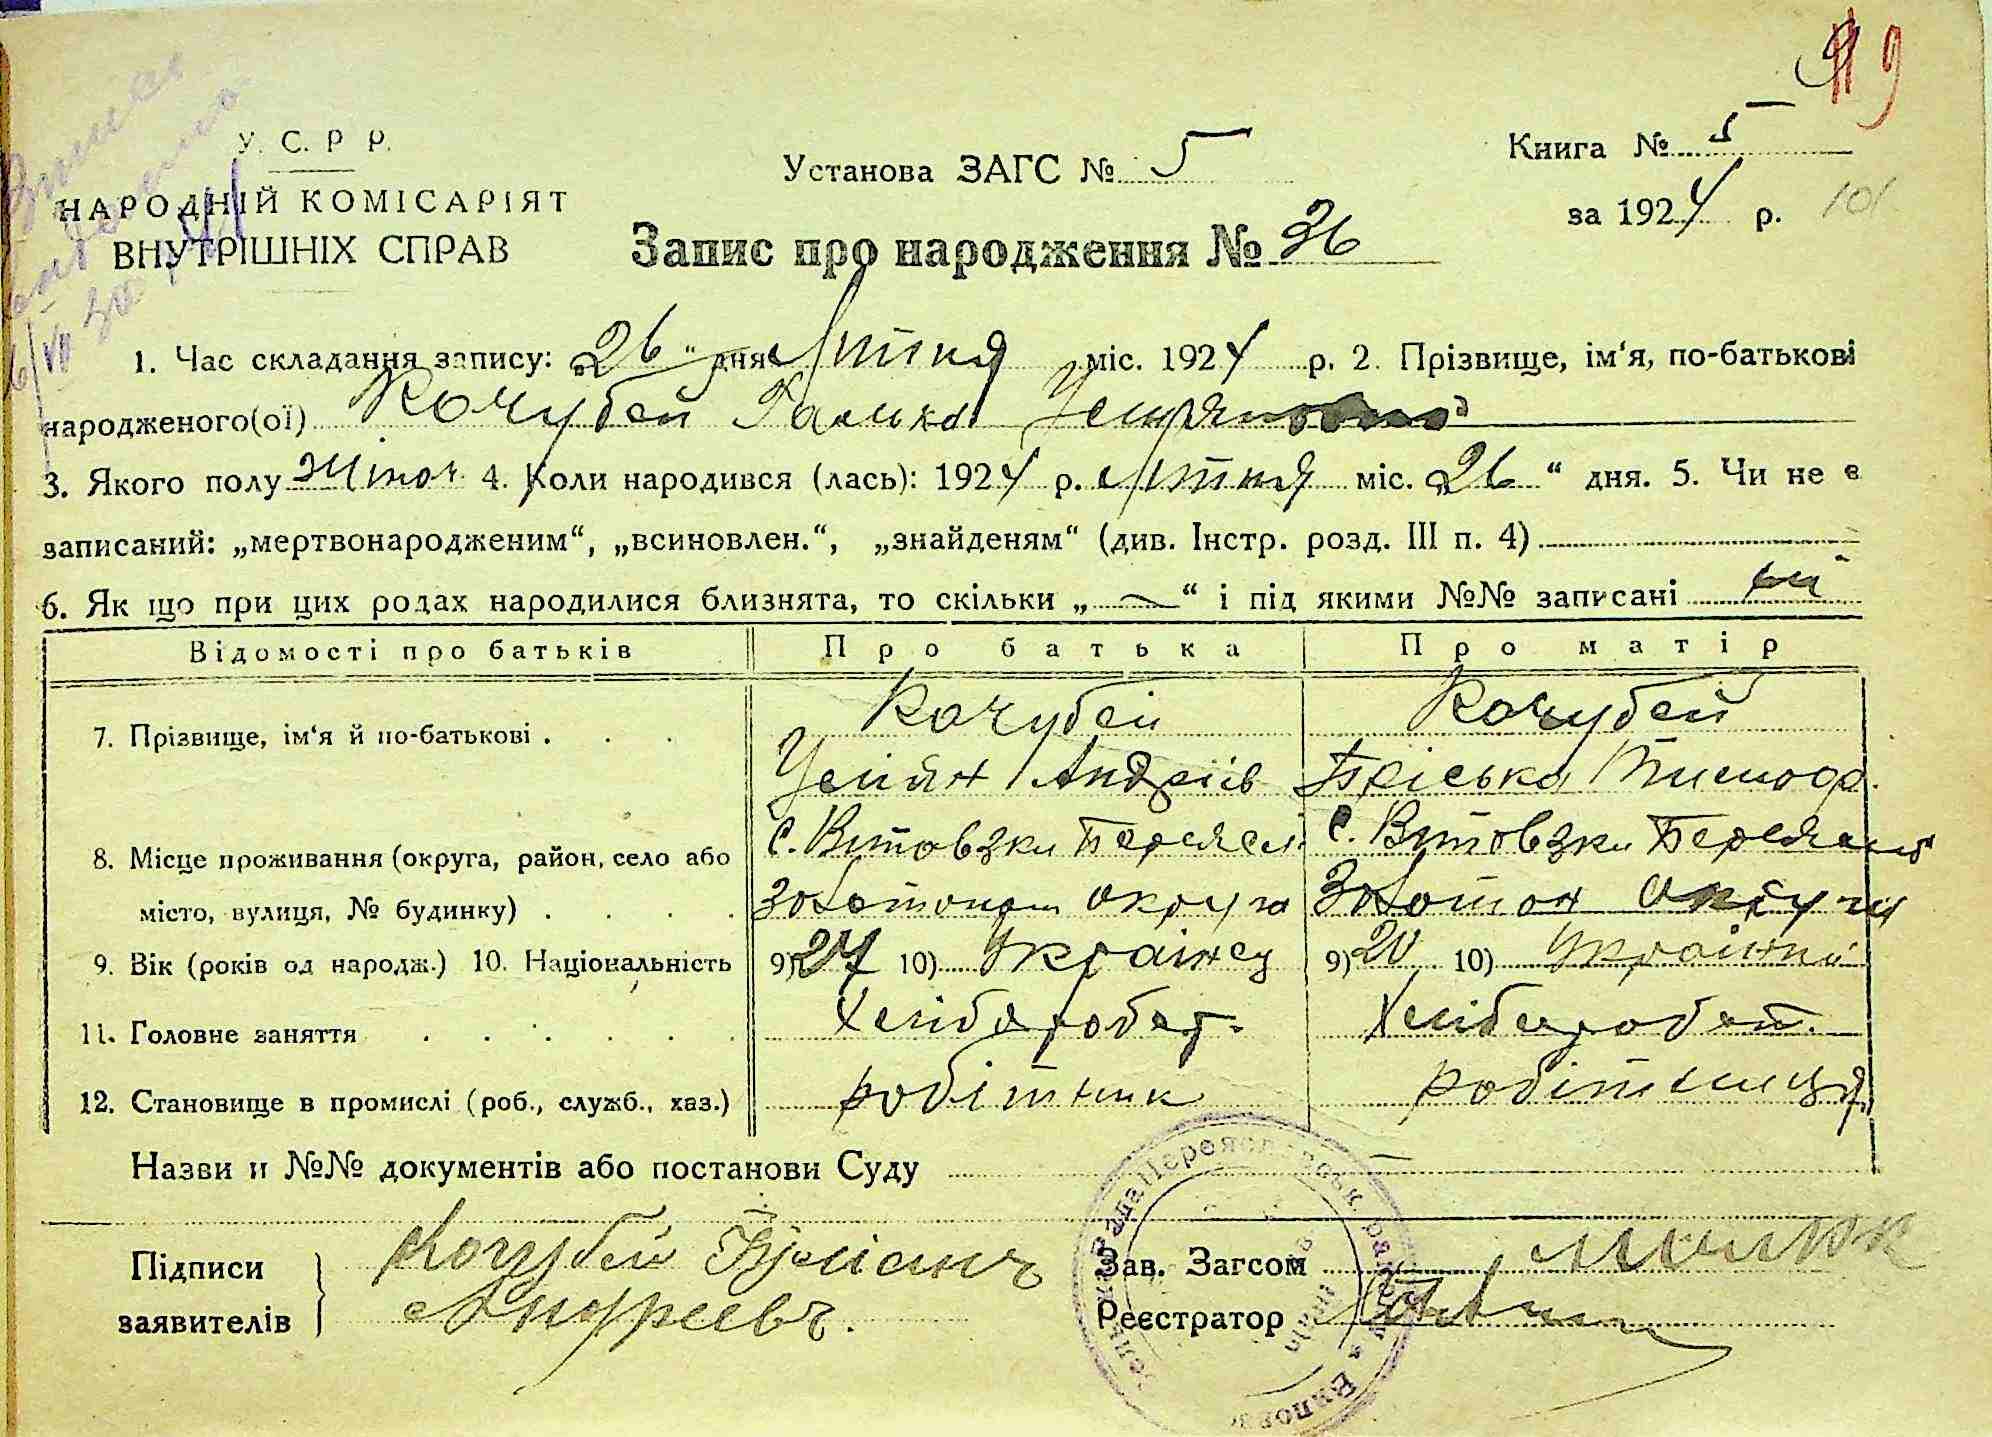 9
У. С. Р Р.
НАРОДНІЙ КОМІСАРІЯТ
ВНУТРІШНІХ СПРАВ
Установа ЗАГС № 5
Книга № 5
за 1924 р. 101
Запис про народження № 36
1. Час складання запису: „26“ дня Лютня міс. 1924 р. 2. Прізвище, ім‘я, по-батькові
народженого(ої) Кочубей Галька
3. Якого полу жіноч. 4. Коли народився (лась): 1924 р. Лютня міс. „26“ дня. 5. Чи не є
записаний: „мертвонародженим“, „всиновлен.“, „знайденям“ (див. Інстр. розд. III п. 4)
6. Як що при цих родах народилися близнята, то скільки „ — “ і під якими №№ записані
Відомості про батьків Про батька Про матір
7. Прізвище, ім‘я й по-батькові . . . Кочубей Кочубей
Андріїв Пріська Тимоф.
8. Місце проживання (округа, район, село або с. Витовзки Переясл. с. Витовзки
місто, вулиця, № будинку) . . . . Золотонош округи Золотон округи
9. Вік (років од народж.) 10. Національність 9) 27 10) Українец 9) 20 10)
11. Головне заняття . . . . . . Хлібороб. Хлібороб.
12. Становище в промислі (роб., служб., хаз.) робітник робітниця
Назви и №№ документів або постанови Суду —
Підписи Кочубей
заявителів Андреевъ.
Зав. Загсом
Реєстратор